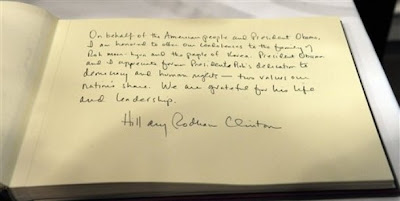 On behalf of the American people and President Obama,
I am honored to offer our condolences to the family of
Roh Moo-hyun and the people of Korea. President Obama
and I appreciate former President Roh's dedication to
democracy and human rights — two values our
nations share. We are grateful for his life
and leadership.
Hillary Rodham Clinton